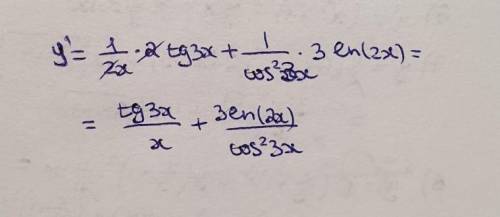 y' = 1/2x · 2 tg3x + 1/cos²3x · 3 ln(2x) =
= tg3x/x + 3ln(2x)/cos²3x